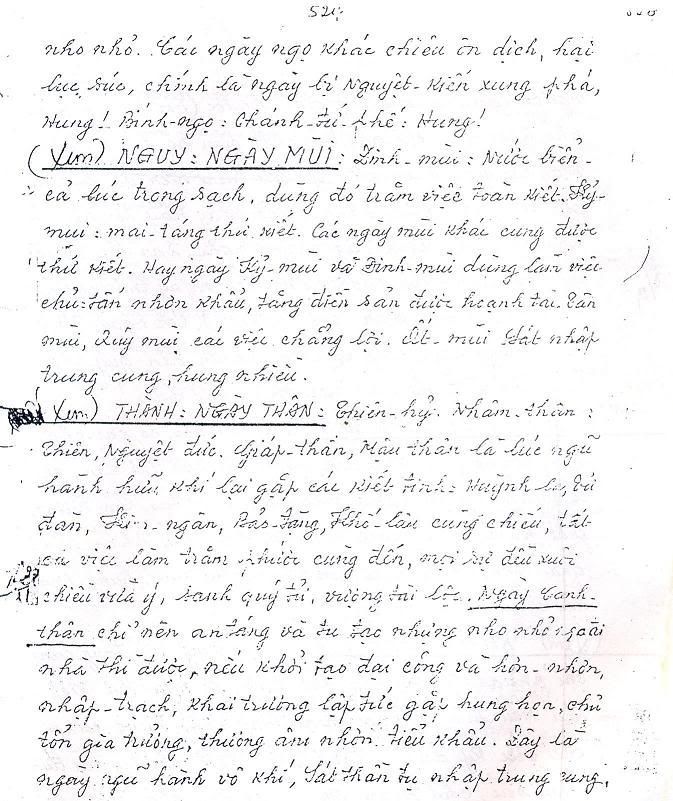 524
nho nhỏ. Các ngày ngọ khác chiêu ôn dịch, hại
lục súc, chính là ngày bị Nguyệt-Kiến xung phá,
Hung! Bính-ngọ: Chánh-tứ-phế: Hung!
(Xem) NGUY: NGÀY MÙI: Đinh-mùi: Nước biển-
cả lúc trong sạch, dùng đó trăm việc toàn kiết. Kỷ-
mùi: mai-táng thứ kiết. Các ngày mùi khác cũng được
thứ kiết. Hay ngày Kỷ-mùi và Đinh-mùi dùng làm việc
chủ tấn nhơn khẩu, tăng điền sản được hoạnh tài. Tân
mùi, Quý mùi các việc chẳng lợi. Ất-mùi Sát nhập
trung cung, hung nhiều.
Xem) THÀNH: NGÀY THÂN: Thiên-hỷ. Nhâm-thân:
Thiên, Nguyệt đức. Giáp-thân, Mậu thân là lúc ngũ
hành hữu khí lại gặp các kiết tinh: Huỳnh la, Tử
đàn, ngân, Bảo-tàng, Khố-lâu cùng chiếu, tất
cả việc làm trăm phước cùng đến, mọi sự đều xuôi
chiều vừa ý, sanh quý tử, vượng tài lộc. Ngày Canh-
thân chỉ nên an táng và tu tạo nhưng nho nhỏ ngoài
nhà thì được, nếu khởi tạo đại công và hôn-nhơn,
nhập-trạch, khai trương lập tức gặp hung họa, chủ
tổn gia trưởng, thương âm nhơn tiểu khẩu. Đây là
ngày ngũ hành vô khí, Sát thần tụ nhập trung cung,